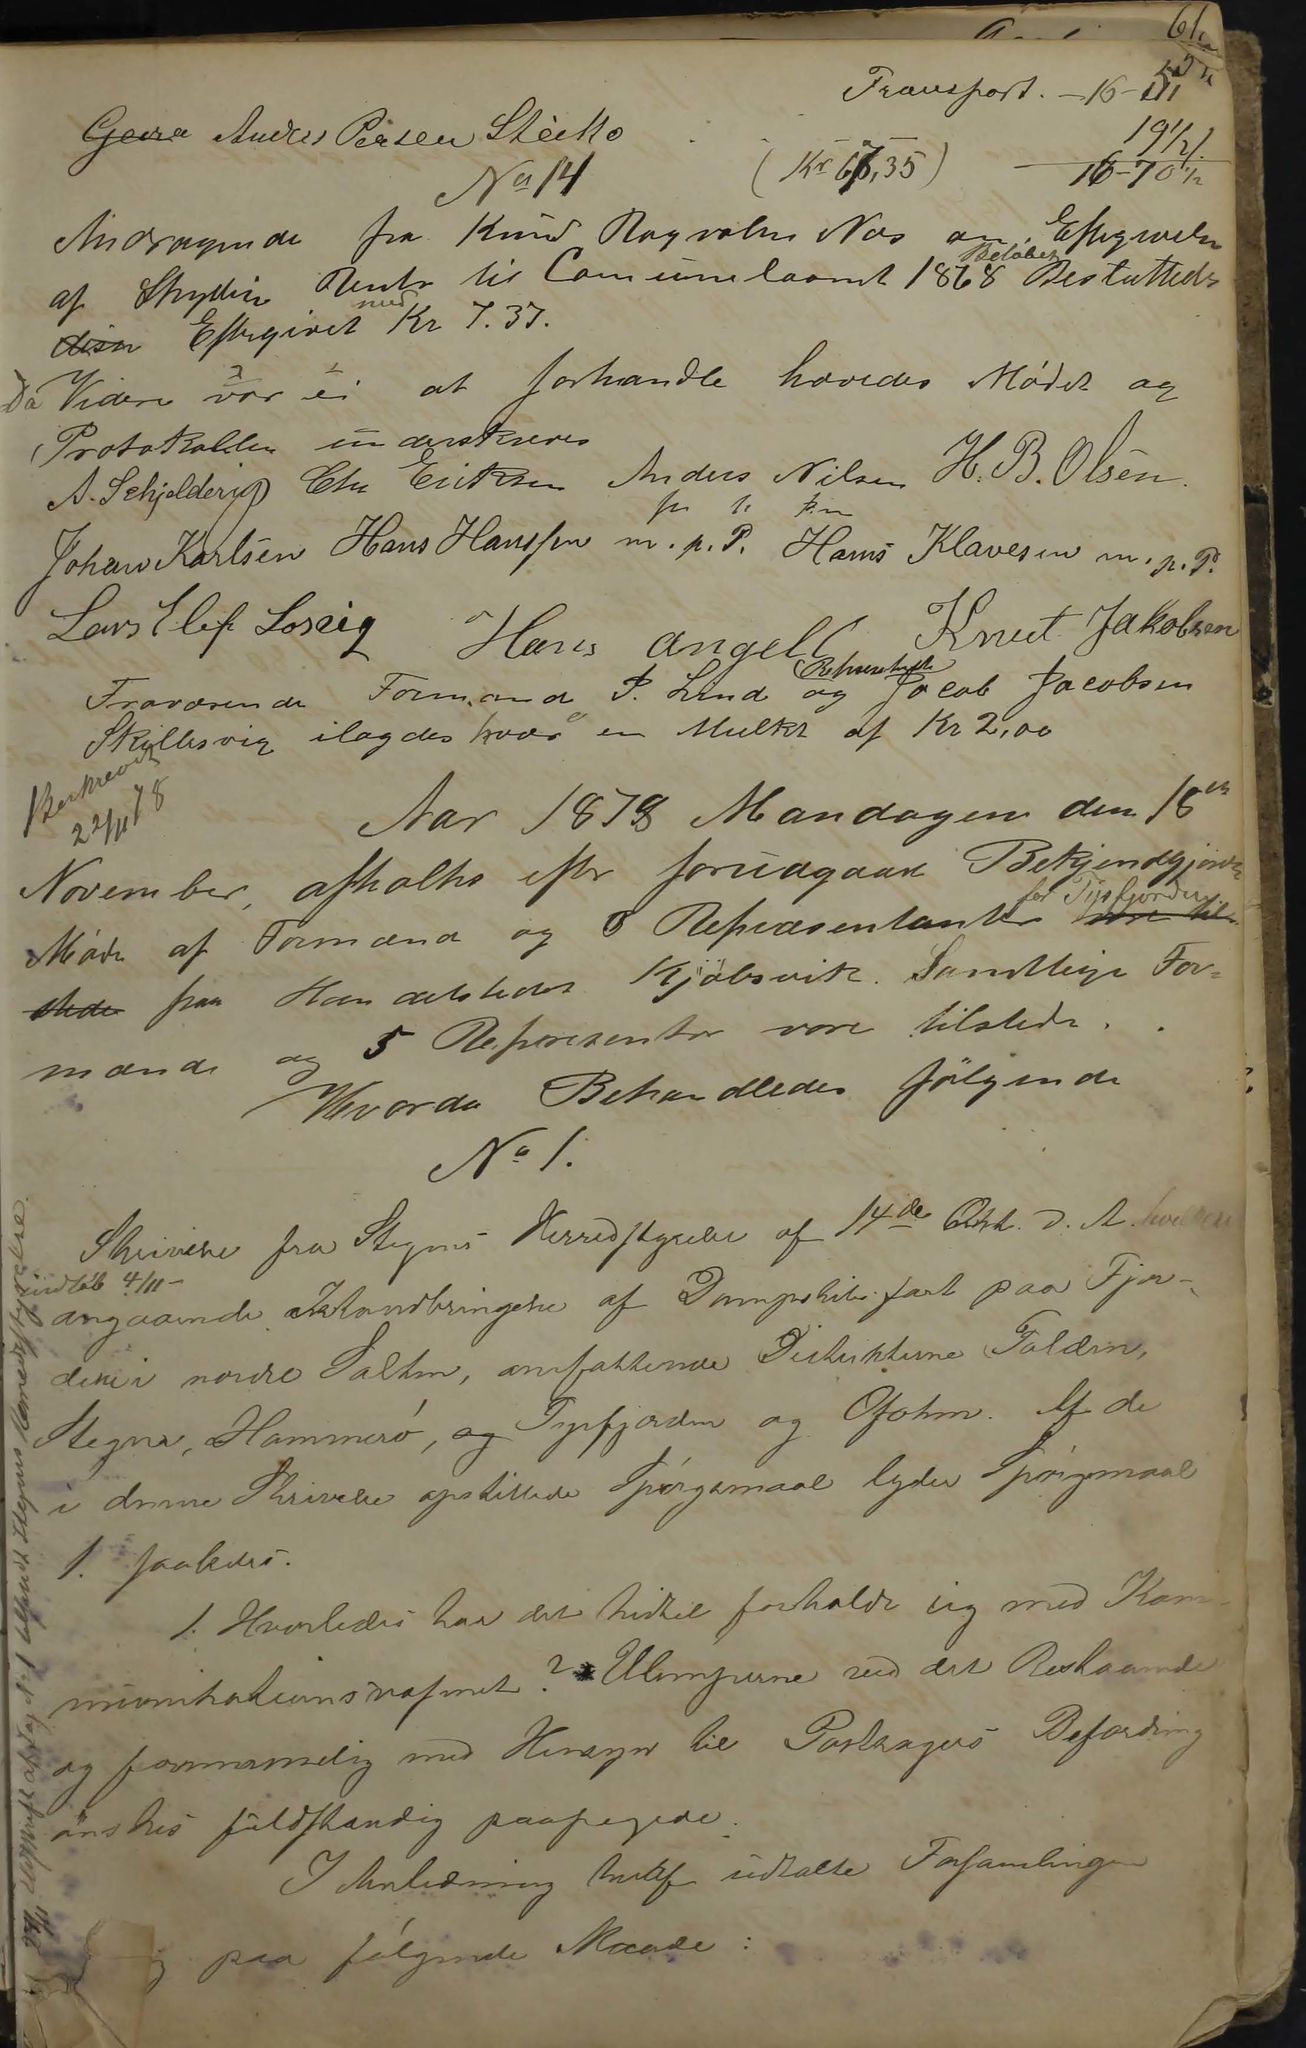 61
Transport. – 16 –
Anders Persen 19 1/2
No 14 (Kr 67,35) 16–70 1/2
Andragende fra Knud Ragvalsen Næs om Eftergivelse
af Skyldig Rente til Comunelaanet 1868 Beløbet Besluttedes
Eftergivet med Kr 7.37.
Da Videre var ei at forhandle hævedes Mødet og
Protokollen underskreves
A. Schjelderup Chr Eriksen Anders Nilsen H. B. Olsen.
Johan Karlsen Hans Hanssen m. p. P. Hans Klavesen m. p. P.
Lars Elef Losvig Hans Angell Knut Jakobsen
Fraværende Formand P. Lind og Repræsentant Jacob Jacobsen
Skillesvig ilagdes hver en Mulkt af Kr 2,00
Beskrevet
22/11 78
Aar 1878 Mandagen den 18de
November, afholtes efter forudgaaet Bekjendtgjørelse
Møde af Formænd og Repræsentanter for Tysfjorden
paa Handelstedet Kjøbsvik. Samtlige For-
mænd og 5 Representer vare tilstede.
Hvorda Behandledes følgende
No 1.
Skrivelse fra Stegens Herredstyrelse af 14de Oktb. d. A.
indløb 4/11
angaaende Istandbringelse af Dampskibsfart paa Fjor-
dene i nordre Salten, omfattende Distrikterne Folden,
Stegen, Hammerø, og Tysfjorden og Ofoten. Af de
i denne Skrivelse opstillede Spørgsmaal lyder Spørgsmaal
1. saaledes.
1. Hvorledes har det hidtil forholdt sig med Kom-
munikationsvæsenet? Ulemperne ved det Bestaaende
og fornemmelig med Hensyn til Postsagers Befordring
ønskes fuldstændig paapegede.
I Anledning heraf udtalte Forsamlingen
paa følgende Maade:
Stegens Herredsstyrelse.